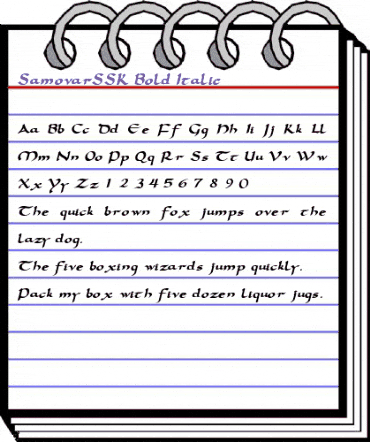 SamovarSSK Bold Italic
Aa Bb Cc Dd Ee Ff Gg Hh Ii Jj Kk Ll
Mm Nn Oo Pp Qq Rr Ss Tt Uu Vv Ww
Xx Yy Zz 1 2 3 4 5 6 7 8 9 0
The quick brown fox jumps over the
lazy dog.
The five boxing wizards jump quickly.
Pack my box with five dozen liquor jugs.